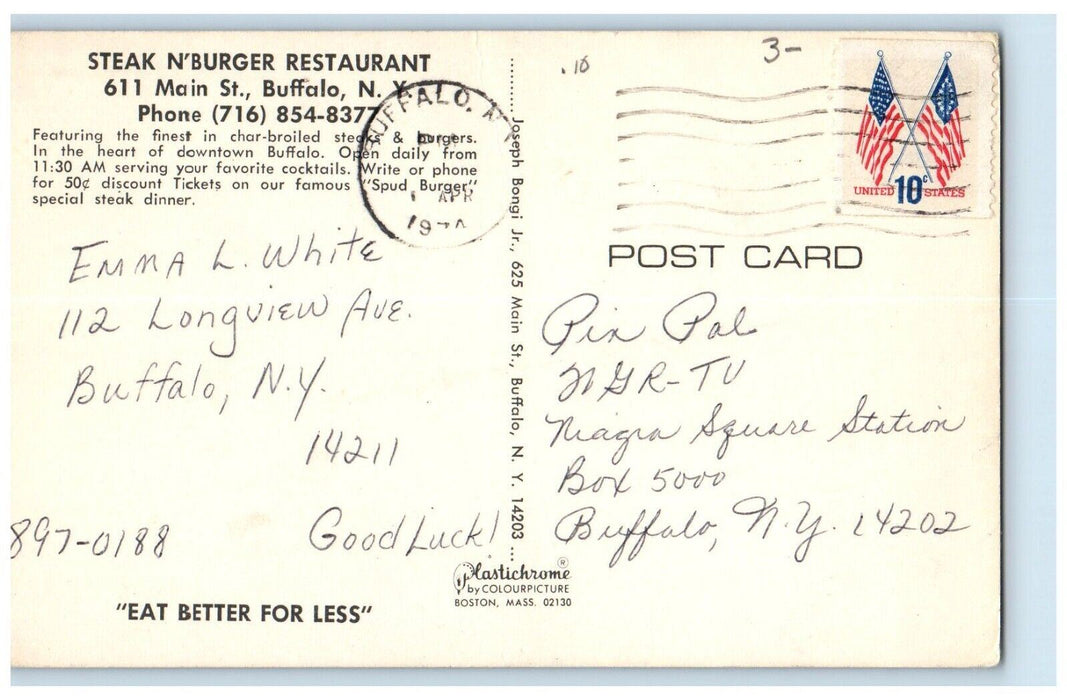 STEAK N'BURGER RESTAURANT
611 Main St., Buffalo, N. Y.
Phone (716) 854-8377
Featuring the finest in char-broiled steaks & burgers.
In the heart of downtown Buffalo. Open daily from
11:30 AM serving your favorite cocktails. Write or phone
for 50¢ discount Tickets on our famous "Spud Burger"
special steak dinner.
Emma L. White
112 Longview Ave.
Buffalo, N.Y.
14211
897-0188
Good Luck!
"EAT BETTER FOR LESS"
Joseph Bongi Jr., 625 Main St., Buffalo, N. Y. 14203
Plastichrome®
by COLOURPICTURE
BOSTON, MASS. 02130
BUFFALO, N
APR
.10
3-
UNITED 10c STATES
POST CARD
Pin Pal
WGR-TV
Niagra Square Station
Box 5000
Buffalo, N.Y. 14202